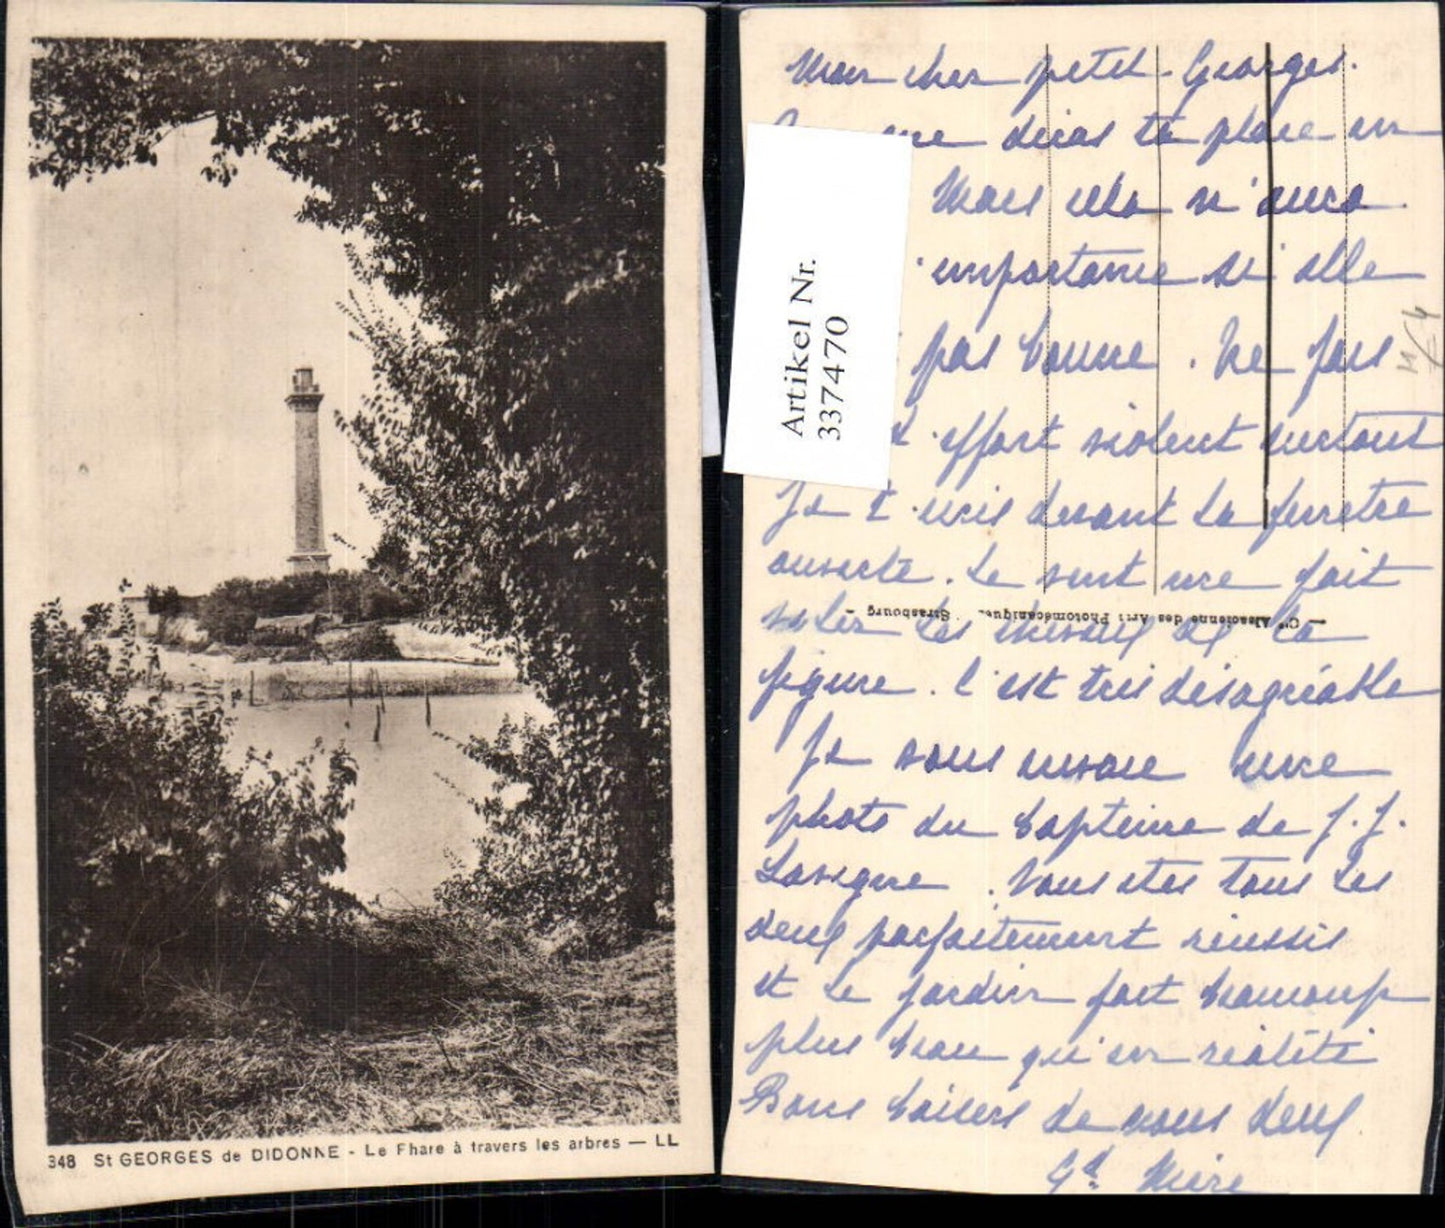 348 St GEORGES de DIDONNE - Le Fhare à travers les arbres — LL
Artikel Nr.
337470
Mon cher petit Georges.
me diras ta place en
Mais cela n'aura
importance si elle
pas bonne. Ne fais
effort violent surtout
Je t'écris devant la fenetre
ouverte. Le vent me fait
voler les cheveux
la
figure. C'est très désagréable
Je vous envoie une
photo du bapteme de J. J.
Lavigne. Vous etes tous les
deux parfaitement réussis
et le jardin fait beaucoup
plus beau qu'en réalité
Bons baisers de nous deux
Gd Mère
Cie Alsacienne des Arts Photomécaniques Strasbourg